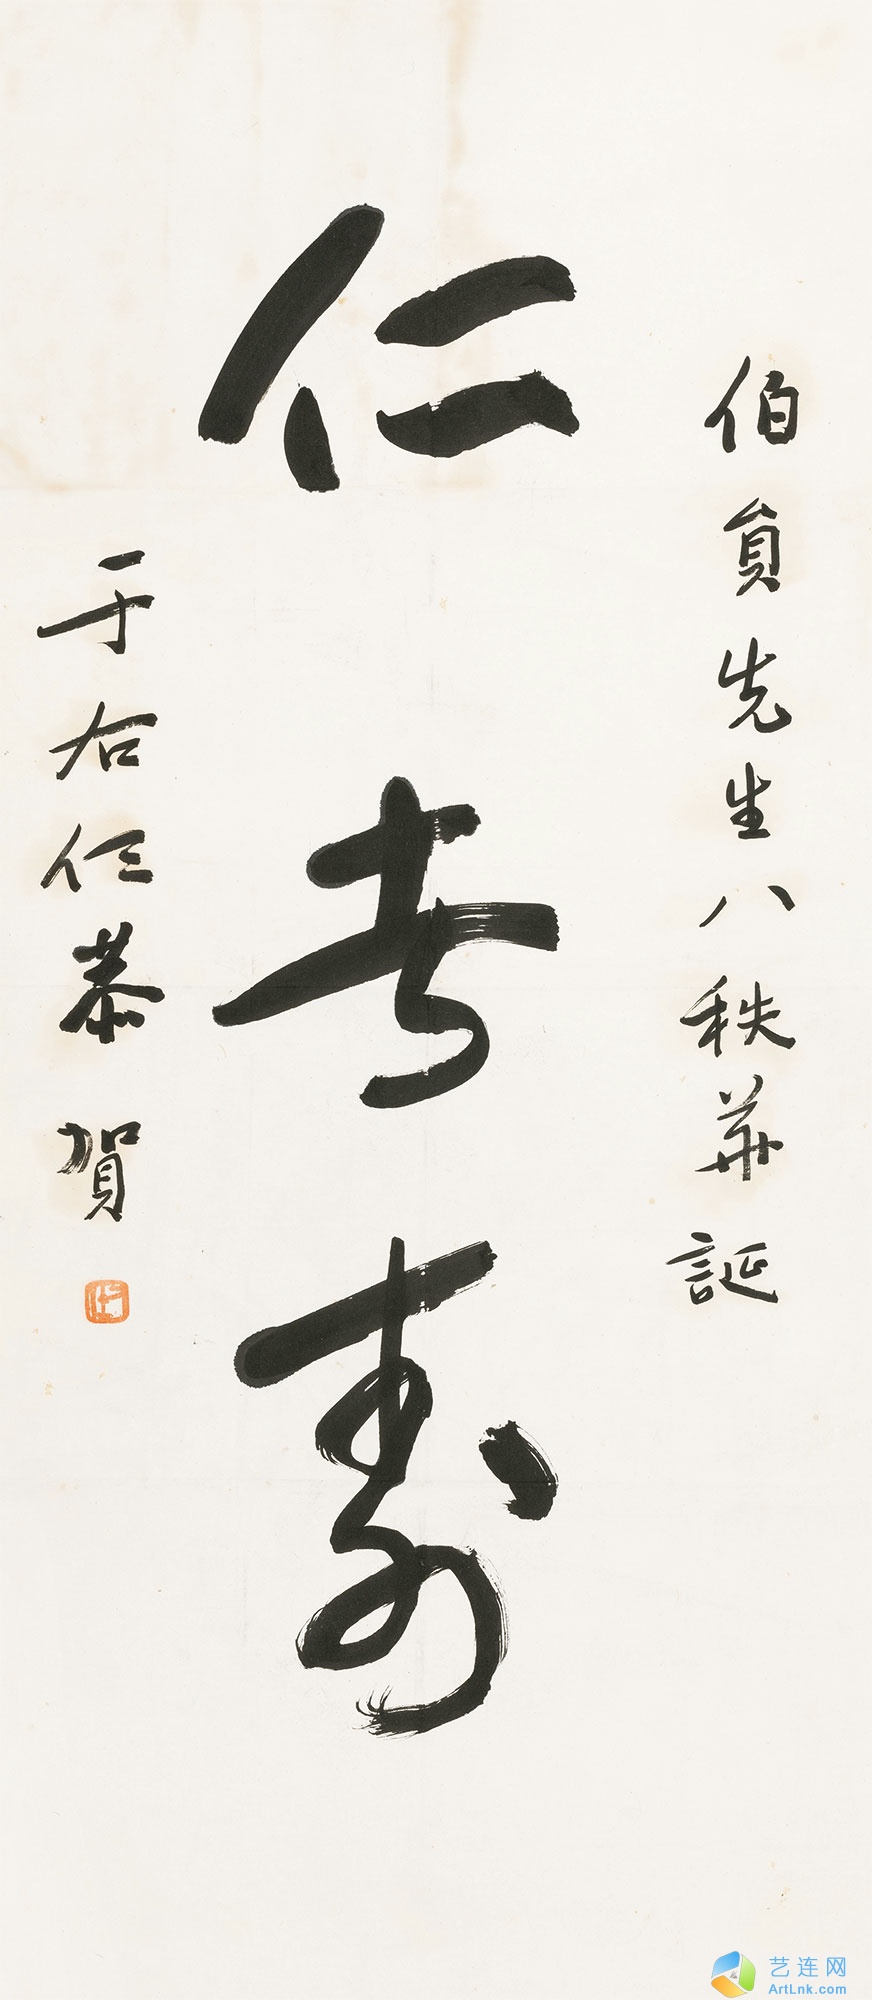 伯員先生八秩華誕
仁者壽
于右任恭賀
艺连网
ArtLnk.com